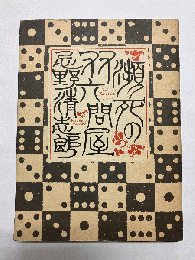 瀕死の
双六問屋
忌野清志郎